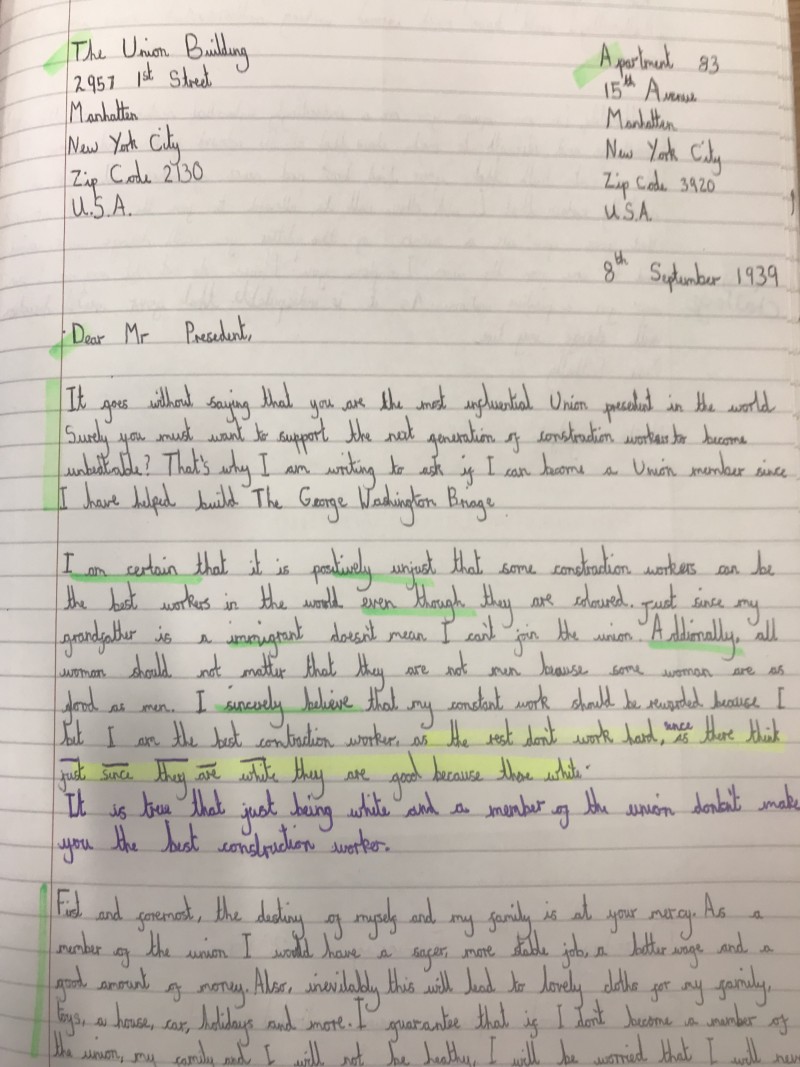 The Union Building
2957 1st Street
Manhatten
New York City
Zip Code 2730
U.S.A.
Apartment 83
15th Avenue
Manhatten
New York City
Zip Code 3920
U.S.A.
8th September 1939
Dear Mr Presedent,
It goes without saying that you are the most influential Union presedent in the world
Surely you must want to support the next generation of constraction workers to become
unbeatable? That's why I am writing to ask if I can become a Union member since
I have helped build The George Washington Bridge
I am certain that it is positively unjust that some constraction workers can be
the best workers in the world even though they are coloured. Just since my
grandfather is a immigrant doesn't mean I can't join the union. Addionally, all
woman should not matter that they are not men because some woman are as
good as men. I sincerely believe that my constant work should be rewarded because I
I am the best contraction worker, as the rest don't work hard, since is there think
just since they are white they are good because there white.
It is true that just being white and a member of the union make
you the best construction worker.
First and foremost, the destiny of myself and my family is at your mercy. As a
member of the union I would have a safer, more stable job, a better wage and a
good amount of money. Also, inevilably this will lead to lovely cloths for my family,
toys, a house, car, holidays and more. I guarantee that if I don't become a member of
the union, my family and I will not be healthy, I will be worried that I will